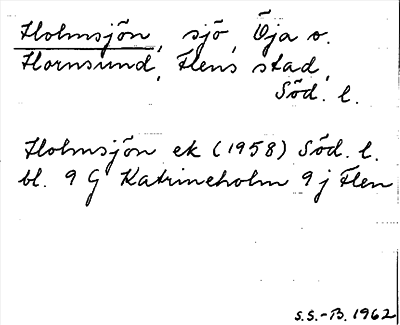 Holmsjön, sjö, Öja o.
Hornsund, Flens stad,
Söd. l.
Holmsjön ek (1958) Söd. l.
bl. 9 G Katrineholm 9 j Flen
S.S.-B. 1962